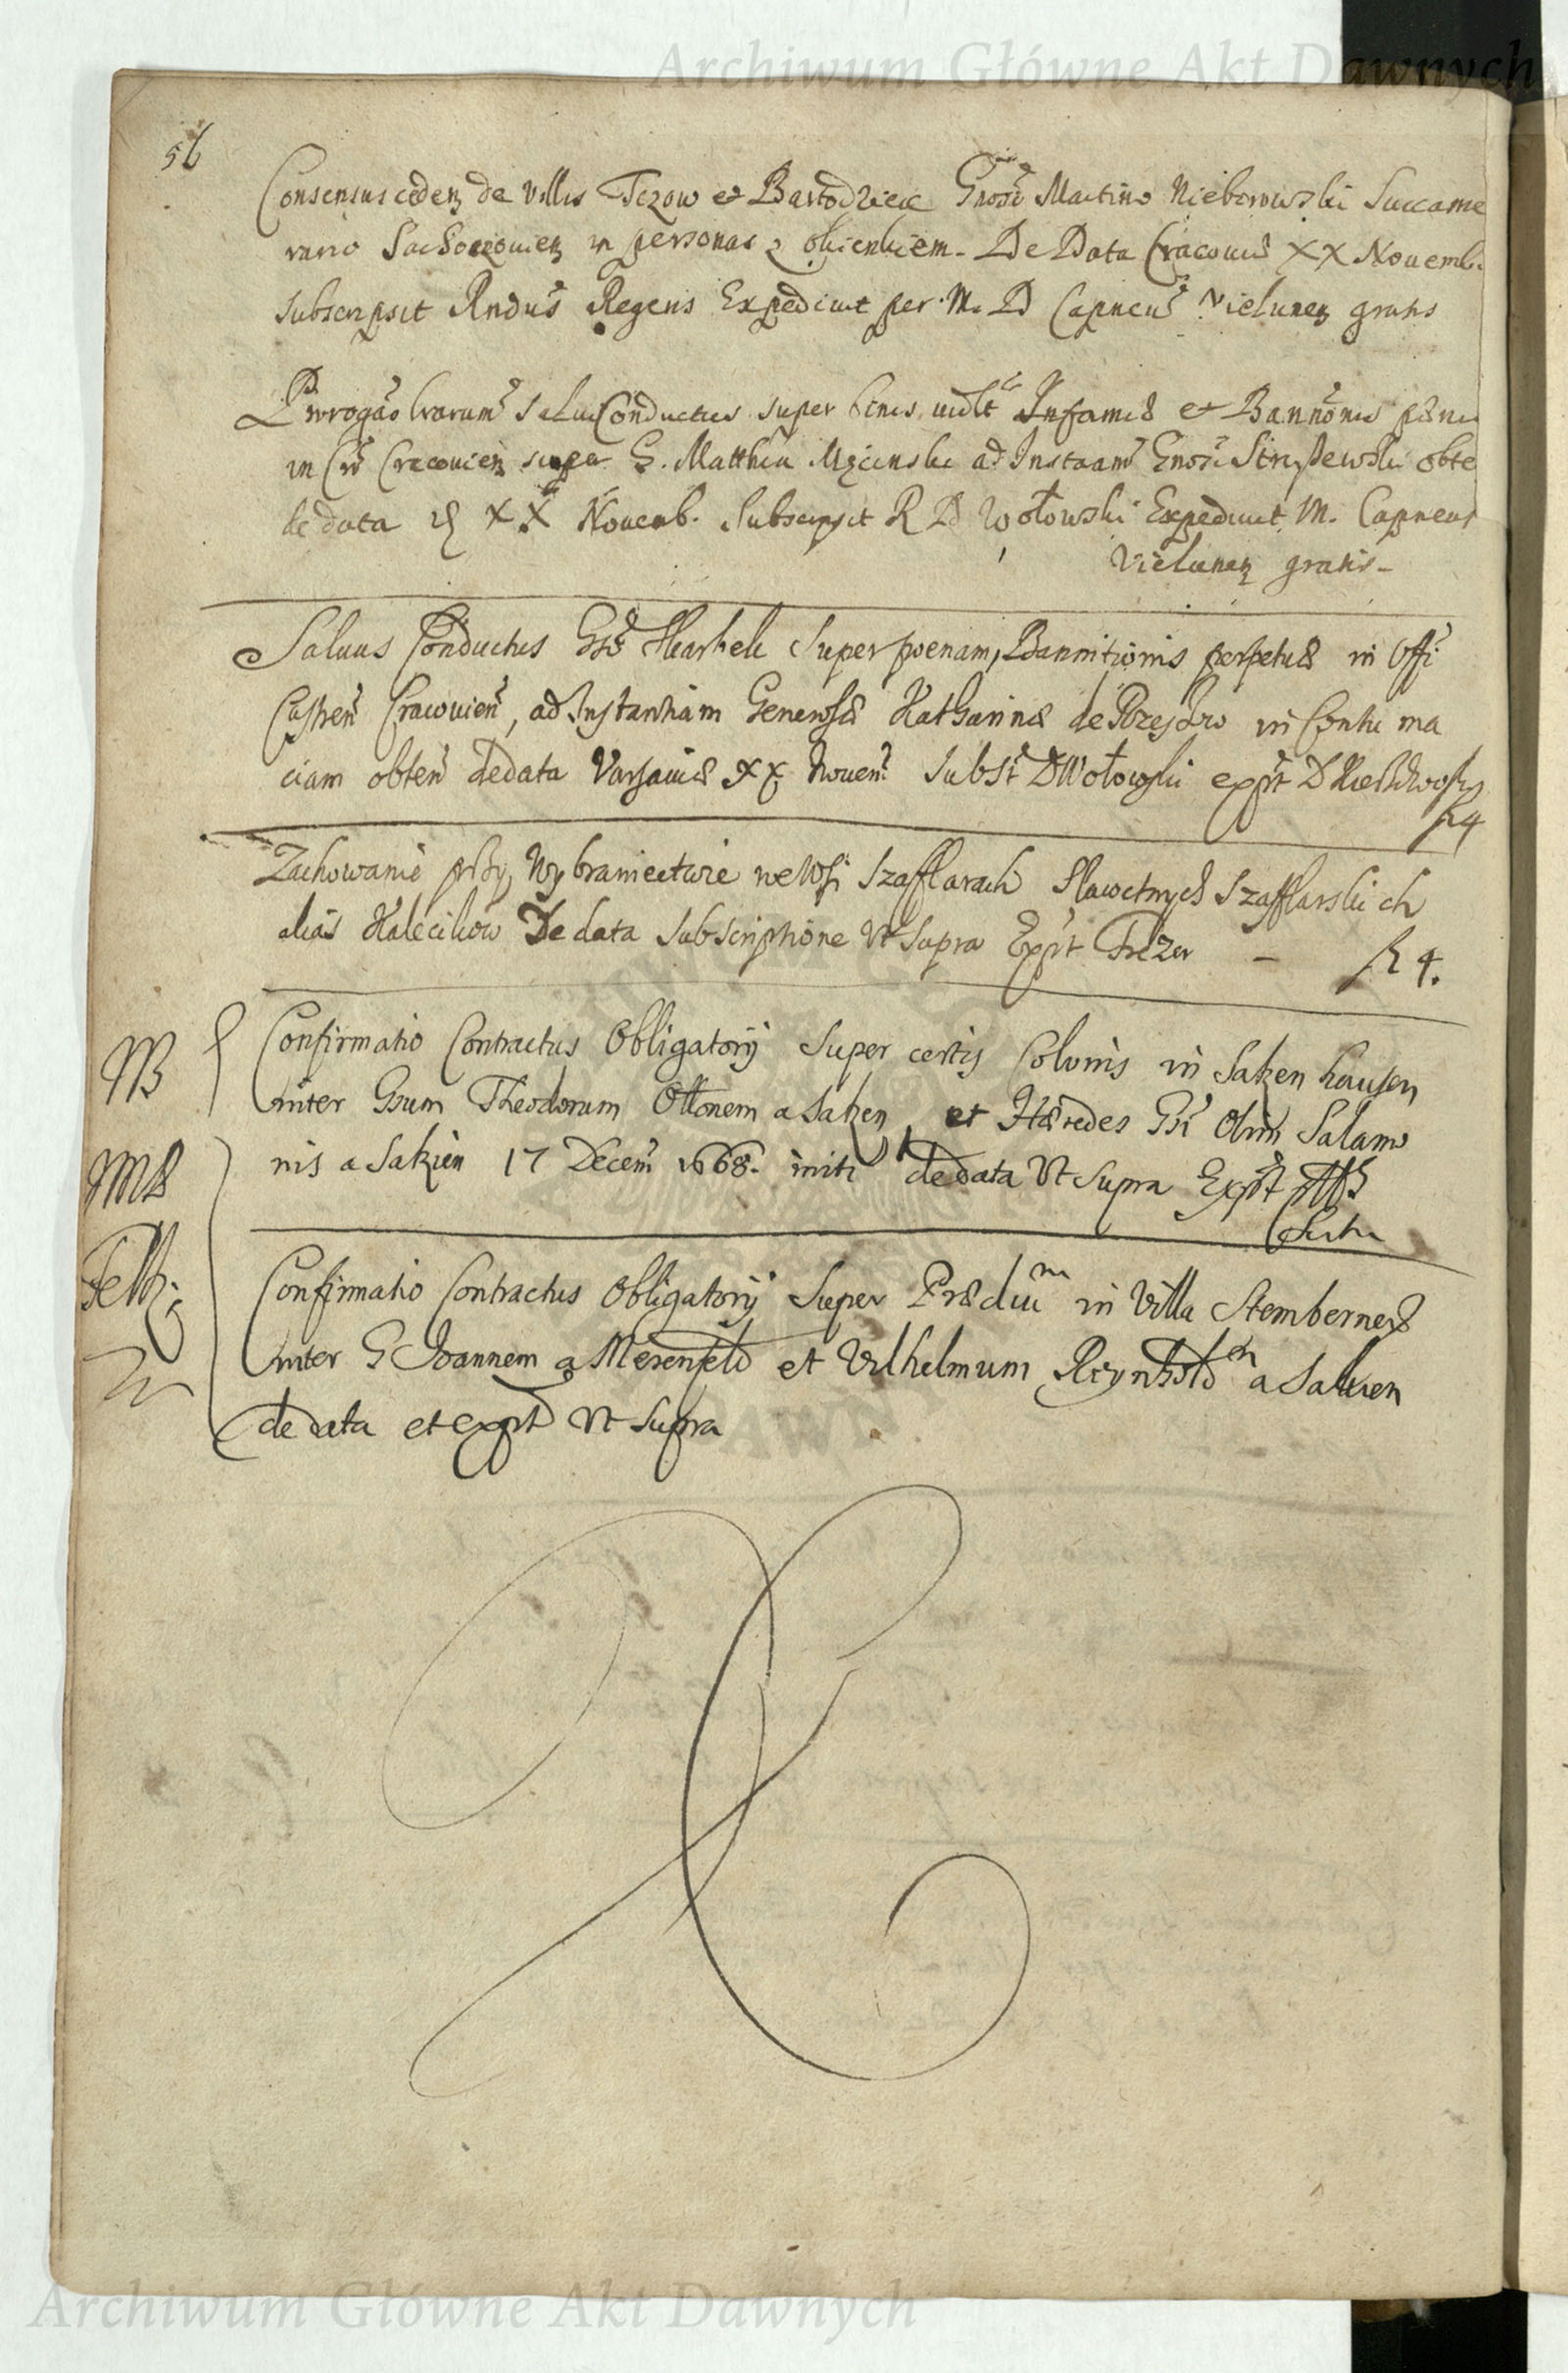 Archiwum Główne Akt Dawnych
56
Consensus ceden de Villis Tczow et Bartodzieie Martino Nieborowski Succame
rario Sochoczouien in personas z okienkiem. De Data Cracouiæ XX Nouemb.
Subscripsit Rndus Regens Expediuit per M. D Capneus Vielunen gratis
Prorogao lrarum Salui Conductus super binis Infamiæ et Bannonis pænis
in Cracouien super G. Matthia Mącinski ad Instaam obte
de data XX Nouemb. Subscripsit R D Wołowski Expediuit M. Capneus
Vielunen gratis
Saluus Conductus Gso Harkeli Super poenam Bannitionis perpetuæ in Offi
Castren Cracouien, ad Instantiam Generosæ Katharinæ in Contu ma
ciam obten de data Varsauiæ XX Nouem Subst D Wołowski expt D
fl 4
Zachowanie przy Wybraniectwie we Wsi Szafflarach Sławetnych Szafflarskich
alias De data Subscriptione Vt Supra Expt Frezer – fl 4.
NB
Confirmatio Contractus Obligatorij Super certis Colonis in Saken hausen
inter Gsum Theodorum Ottonem a Saken, et Hæredes Gsi Olim Salamo
nis a Sakien 17 Decem 1668. initi de data Vt Supra Expt
Confirmatio Contractus Obligatorij Super Prædium in Villa Stemberney
inter G Joannem a Mesenfeld et Vilhelmum Reynholden a Sakien
de data et expt Vt Supra
Archiwum Główne Akt Dawnych